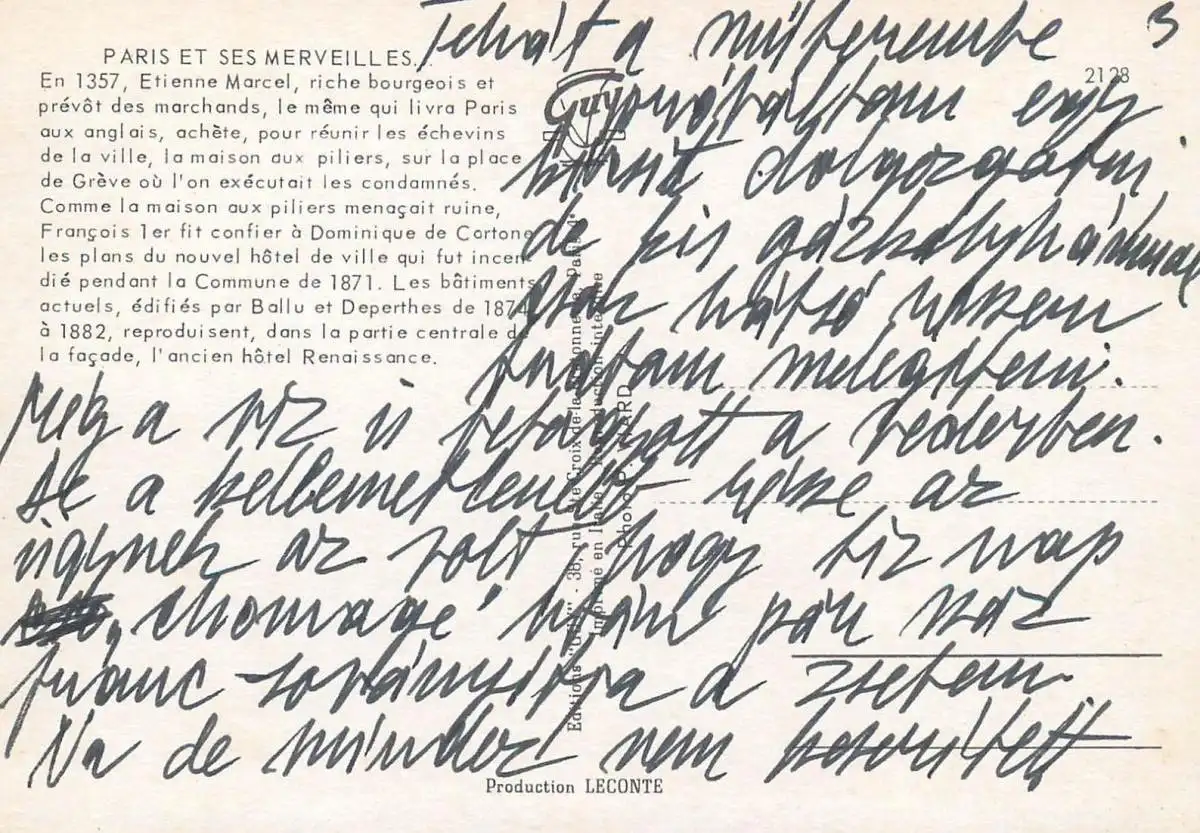 Tehát a műterembe 3
PARIS ET SES MERVEILLES...
2128
En 1357, Etienne Marcel, riche bourgeois et
prévôt des marchands, le même qui livra Paris
aux anglais, achète, pour réunir les échevins
de la ville, la maison aux piliers, sur la place
de Grève où l'on exécutait les condamnés.
Comme la maison aux piliers menaçait ruine,
François 1er fit confier à Dominique de Cortone
les plans du nouvel hôtel de ville qui fut incen-
dié pendant la Commune de 1871. Les bâtiments
actuels, édifiés par Ballu et Deperthes de 1874
à 1882, reproduisent, dans la partie centrale de
la façade, l'ancien hôtel Renaissance.
GUY
egy
dolgozgatni,
de kis gázkályhámmal
csak hátsó részem
tudtam melegíteni.
Még a víz is befagyott a vederben.
De a kellemetlenebb része az
ügynek az volt, hogy tíz nap
„chomage" után pár száz
franc soványította a zsebem.
Na de mindez nem keserített
Editions "GUY" - 38, rue Croix-de-la-
Imprimé en Italie - Reproduction interdite
Photo P. VIARD
Production LECONTE